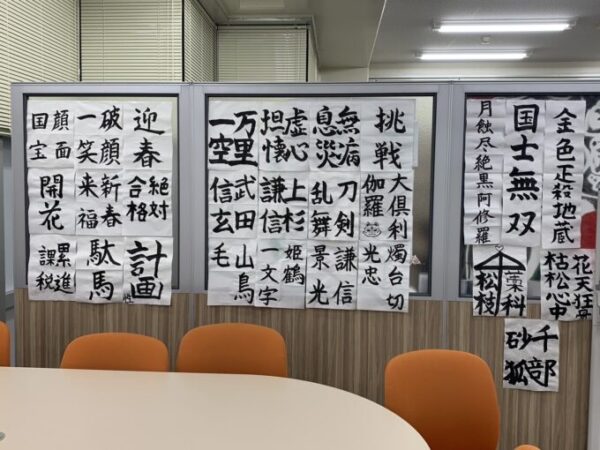 迎春
破顔
一笑
顔面
国宝
絶対
合格
新春
来福
開花
計画
駄馬
累進
課税
挑戦
無病
息災
虚心
坦懐
万里
一空
大倶利
伽羅
刀剣
乱舞
上杉
謙信
武田
信玄
燭台切
光忠
謙信
景光
姫鶴
一文字
山鳥
毛
金色疋殺地蔵
国士無双
月蝕尽絶黒阿修羅
花天狂骨
枯松心中
藁科
松枝
千部
砂狐